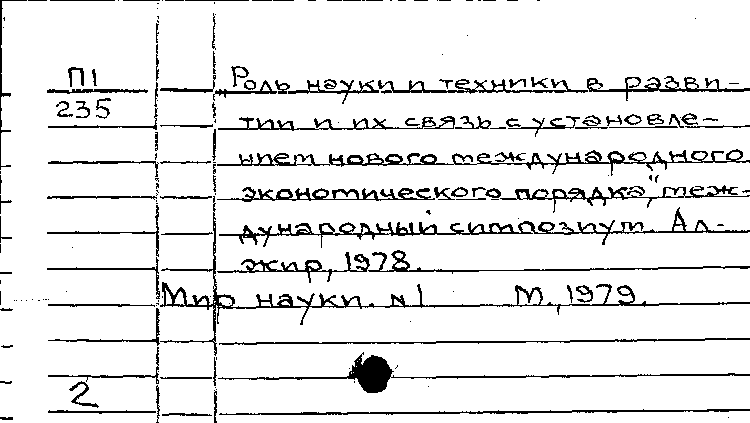 П1
235
Роль науки и техники в разви-
тии и их связь с установле-
нием нового международного
экономического порядка", меж-
дународный симпозиум. Ал-
жир, 1978.
Мир науки. N1 М., 1979.
2